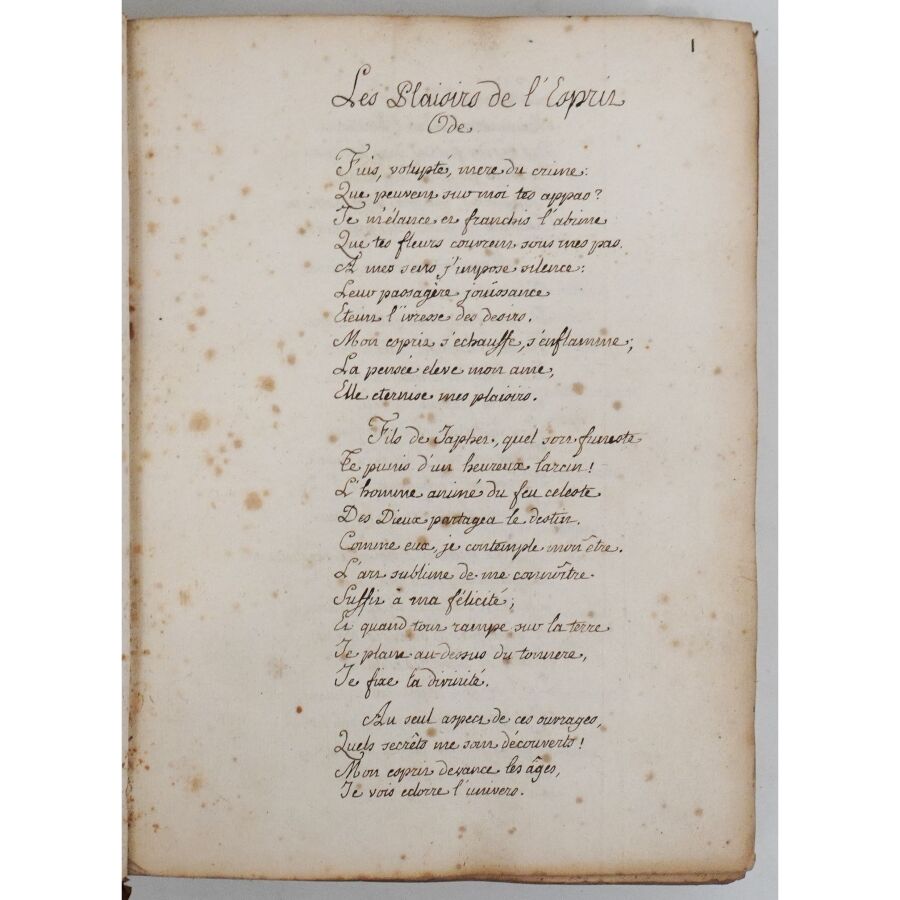 1
Les Plaisirs de l'Esprit
Ode.
Fuis, volupté, mere du crime:
Que peuvent sur moi tes appas?
Je m'élance et franchis l'abime
Que tes fleurs couvrent sous mes pas.
A mes sens j'impose silence:
Leur passagère jouissance
Eteint l'ivresse des desirs.
Mon esprit s'echauffe, s'enflamme;
La pensée eleve mon ame,
Elle eternise mes plaisirs.
Fils de Japhet, quel sort funeste
Te punit d'un heureux larcin!
L'homme animé du feu celeste
Des Dieux partagea le destin.
Comme eux, je contemple mon être.
L'art sublime de me connoître
Suffit à ma félicité;
Et quand tout rampe sur la terre
Je plane au-dessus du tonnere,
Je fixe la divinité.
Au seul aspect de ces ouvrages,
Quels secrêts me sont découverts!
Mon esprit devance les âges,
Je vois eclorre l'univers.